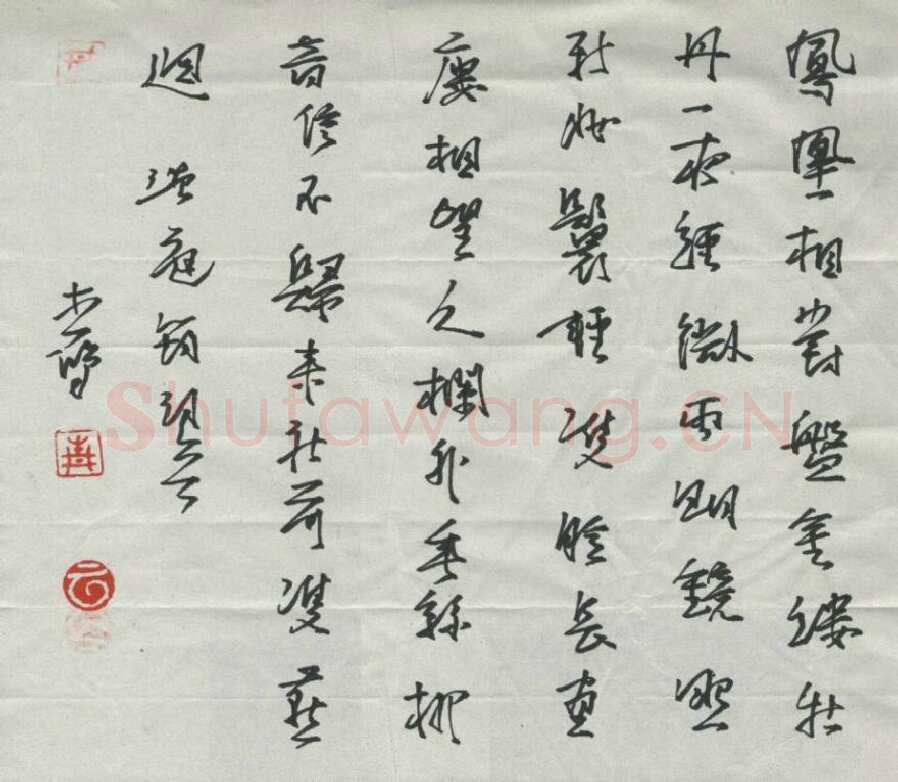 鳳凰相對盤金縷牡
丹一夜經微雨明鏡照
新妝鬢輕雙臉長畫
樓相望久欄外垂絲柳
音信不歸來社前雙燕
迴 溫庭筠
Shufawang.CN